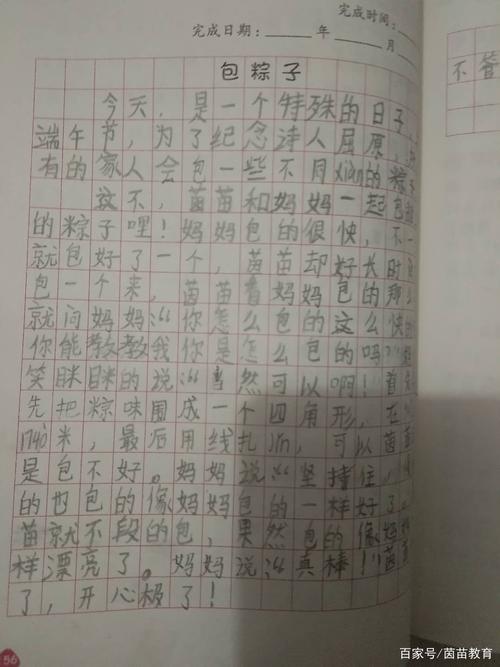 完成时间:
完成日期: 年 月
包粽子
不
今天,是一个特殊的日子,
端午节,为了纪念诗人屈原,
有的家人会包一些不同xiàn的粽子
这不,茵苗和妈妈一起包
的粽子哩!妈妈包的很快,不一
就包好了一个,茵苗却好长时
包一个来,茵苗看妈妈包的那么
就问妈妈:“你怎么包的这么快
你能教教我你是怎么包的吗?”
笑眯眯的说:“当然可以啊!首
先把粽味围成一个四角形,在
米,最后用线扎jǐn,可以茵苗
是包不好。妈妈说:“坚持住,
的也包的像妈妈包的一样好了。
苗就不段的包,果然包的像妈妈
样漂亮了。妈妈说:“真棒!”茵
了,开心极了!
56
百家号/茵苗教育